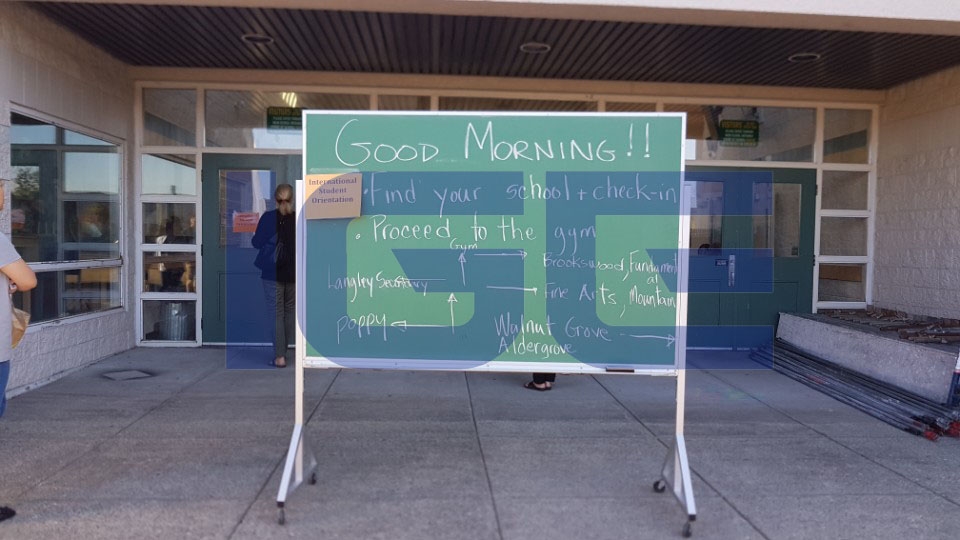 GOOD MORNING!!
International
Student
Orientation
• Find your school + check-in
• Proceed to the gym
Gym
Brookswood, Fundamental
Langley Secondary
Fine Arts, Mountain
Poppy
Walnut Grove
Aldergrove